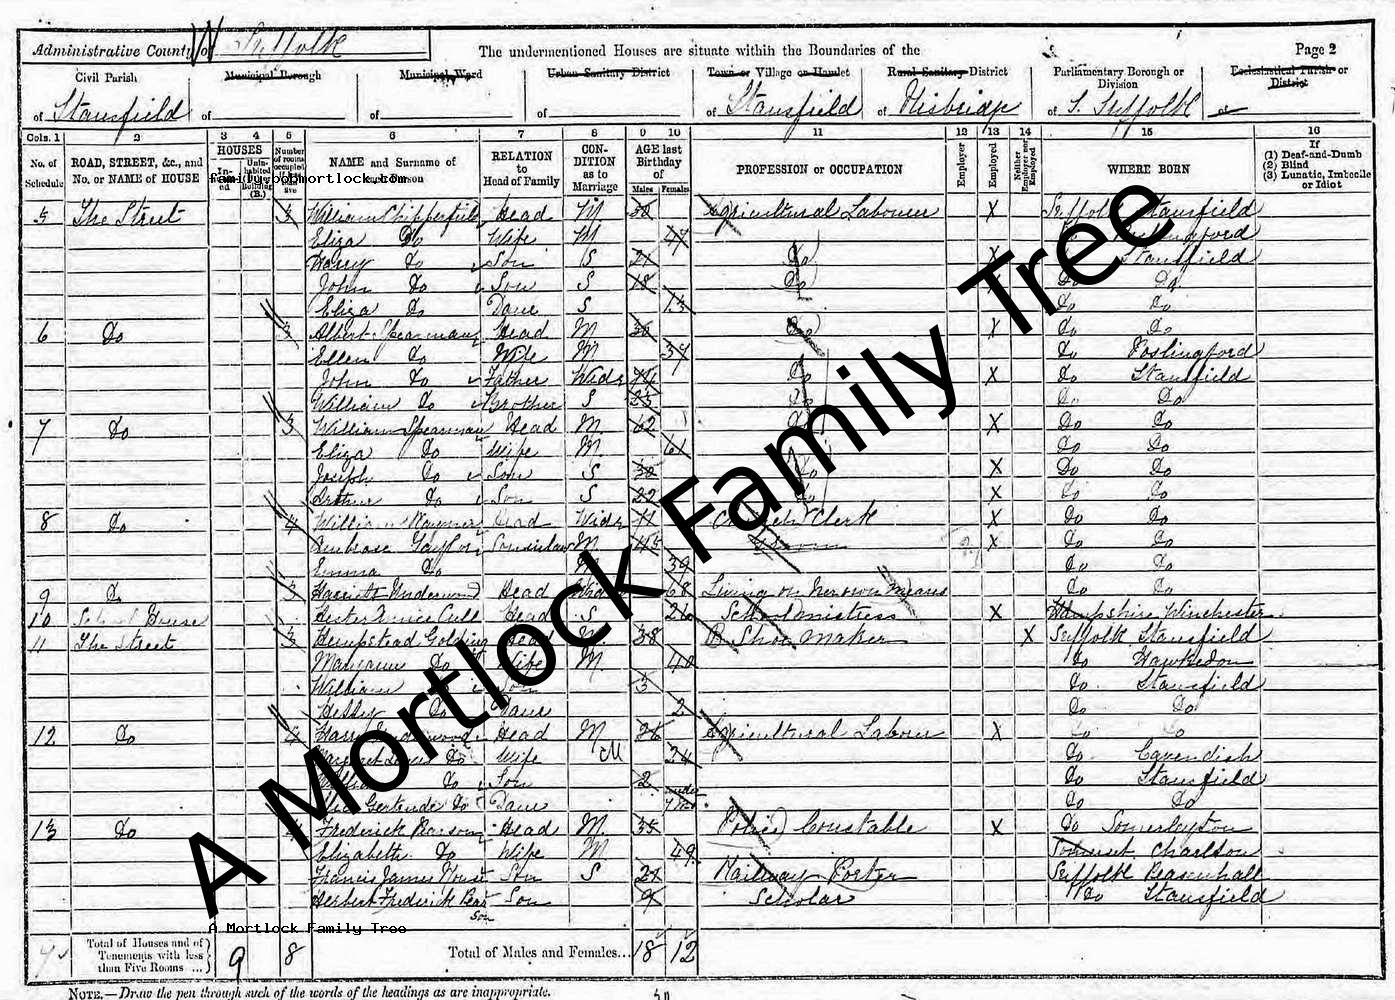 Administrative County of W Suffolk
The undermentioned Houses are situate within the Boundaries of the
Page 2
Civil Parish
of Stansfield
Municipal Borough
of
Municipal Ward
of
Urban Sanitary District
of
Town or Village or Hamlet
of Stansfield
Rural Sanitary District
of Risbridge
Parliamentary Borough or Division
of S. Suffolk
Ecclesiastical Parish or District
of
Cols. 1 2 3 4 5 6 7 8 9 10 11 12 13 14 15 16
No. of Schedule
ROAD, STREET, &c., and No. or NAME of HOUSE
HOUSES
NAME and Surname of
RELATION to Head of Family
CONDITION as to Marriage
AGE last Birthday of
Males Females
PROFESSION or OCCUPATION
Employer
Employed
Neither Employer nor Employed
WHERE BORN
If
(1) Deaf-and-Dumb
(2) Blind
(3) Lunatic, Imbecile or Idiot
family.bobmortlock.com
5 The Street William Chipperfield Head M Agricultural Labourer X Suffolk Stansfield
Eliza Do Wife M 47 Do
Harry Do Son S 21 Do X Stansfield
John Do Son S 18 Do Do Do
Eliza Do Daur S 13 Do Do
6 Do 3 Albert Spearman Head M 36 Do X Do Do
Ellen Do Wife M 37 Do Poslingford
John Do Father Widr 74 Do X Do Stansfield
William Do Brother S 23 Do Do Do
7 Do 3 William Spearman Head M 62 Do X Do Do
Eliza Do Wife M 61 Do Do
Joseph Do Son S 30 Do X Do Do
Arthur Do Son S 22 Do X Do Do
8 Do 4 William Head Widr Church Clerk X Do Do
Ambrose Taylor Soninlaw M 45 Groom X Do Do
Emma Do M 39 Do Do
9 Do 3 Harriett Underwood Head 68 Living on her own means Do Do
10 School House Hester Head S 26 Schoolmistress X Hampshire Winchester
11 The Street 3 Hempstead Golding Head M 38 Shoe Maker X Suffolk Stansfield
Maryann Do Wife M 40 Do Hawkedon
William Son 3 Do Stansfield
Hessey Do Daur 2 Do Do
12 Do Harry Underwood Head M 26 Agricultural Labour X Do Do
Do Wife M 24 Do Cavendish
Do Son 2 Do Stansfield
Gertrude Do Daur under 7 mo Do Do
13 Do 4 Frederick Pearson Head M 35 Police Constable X Do Somerleyton
Elizabeth Do Wife M 49 Somerset Charlton
Francis James Son S 21 Railway Porter Suffolk Peasenhall
Herbert Frederick Pearson Son 9 Scholar Do Stansfield
A Mortlock Family Tree
A Mortlock Family Tree
Total of Houses and of Tenements with less than Five Rooms ... 9 8
Total of Males and Females... 18 12
NOTE.—Draw the pen through such of the words of the headings as are inappropriate.